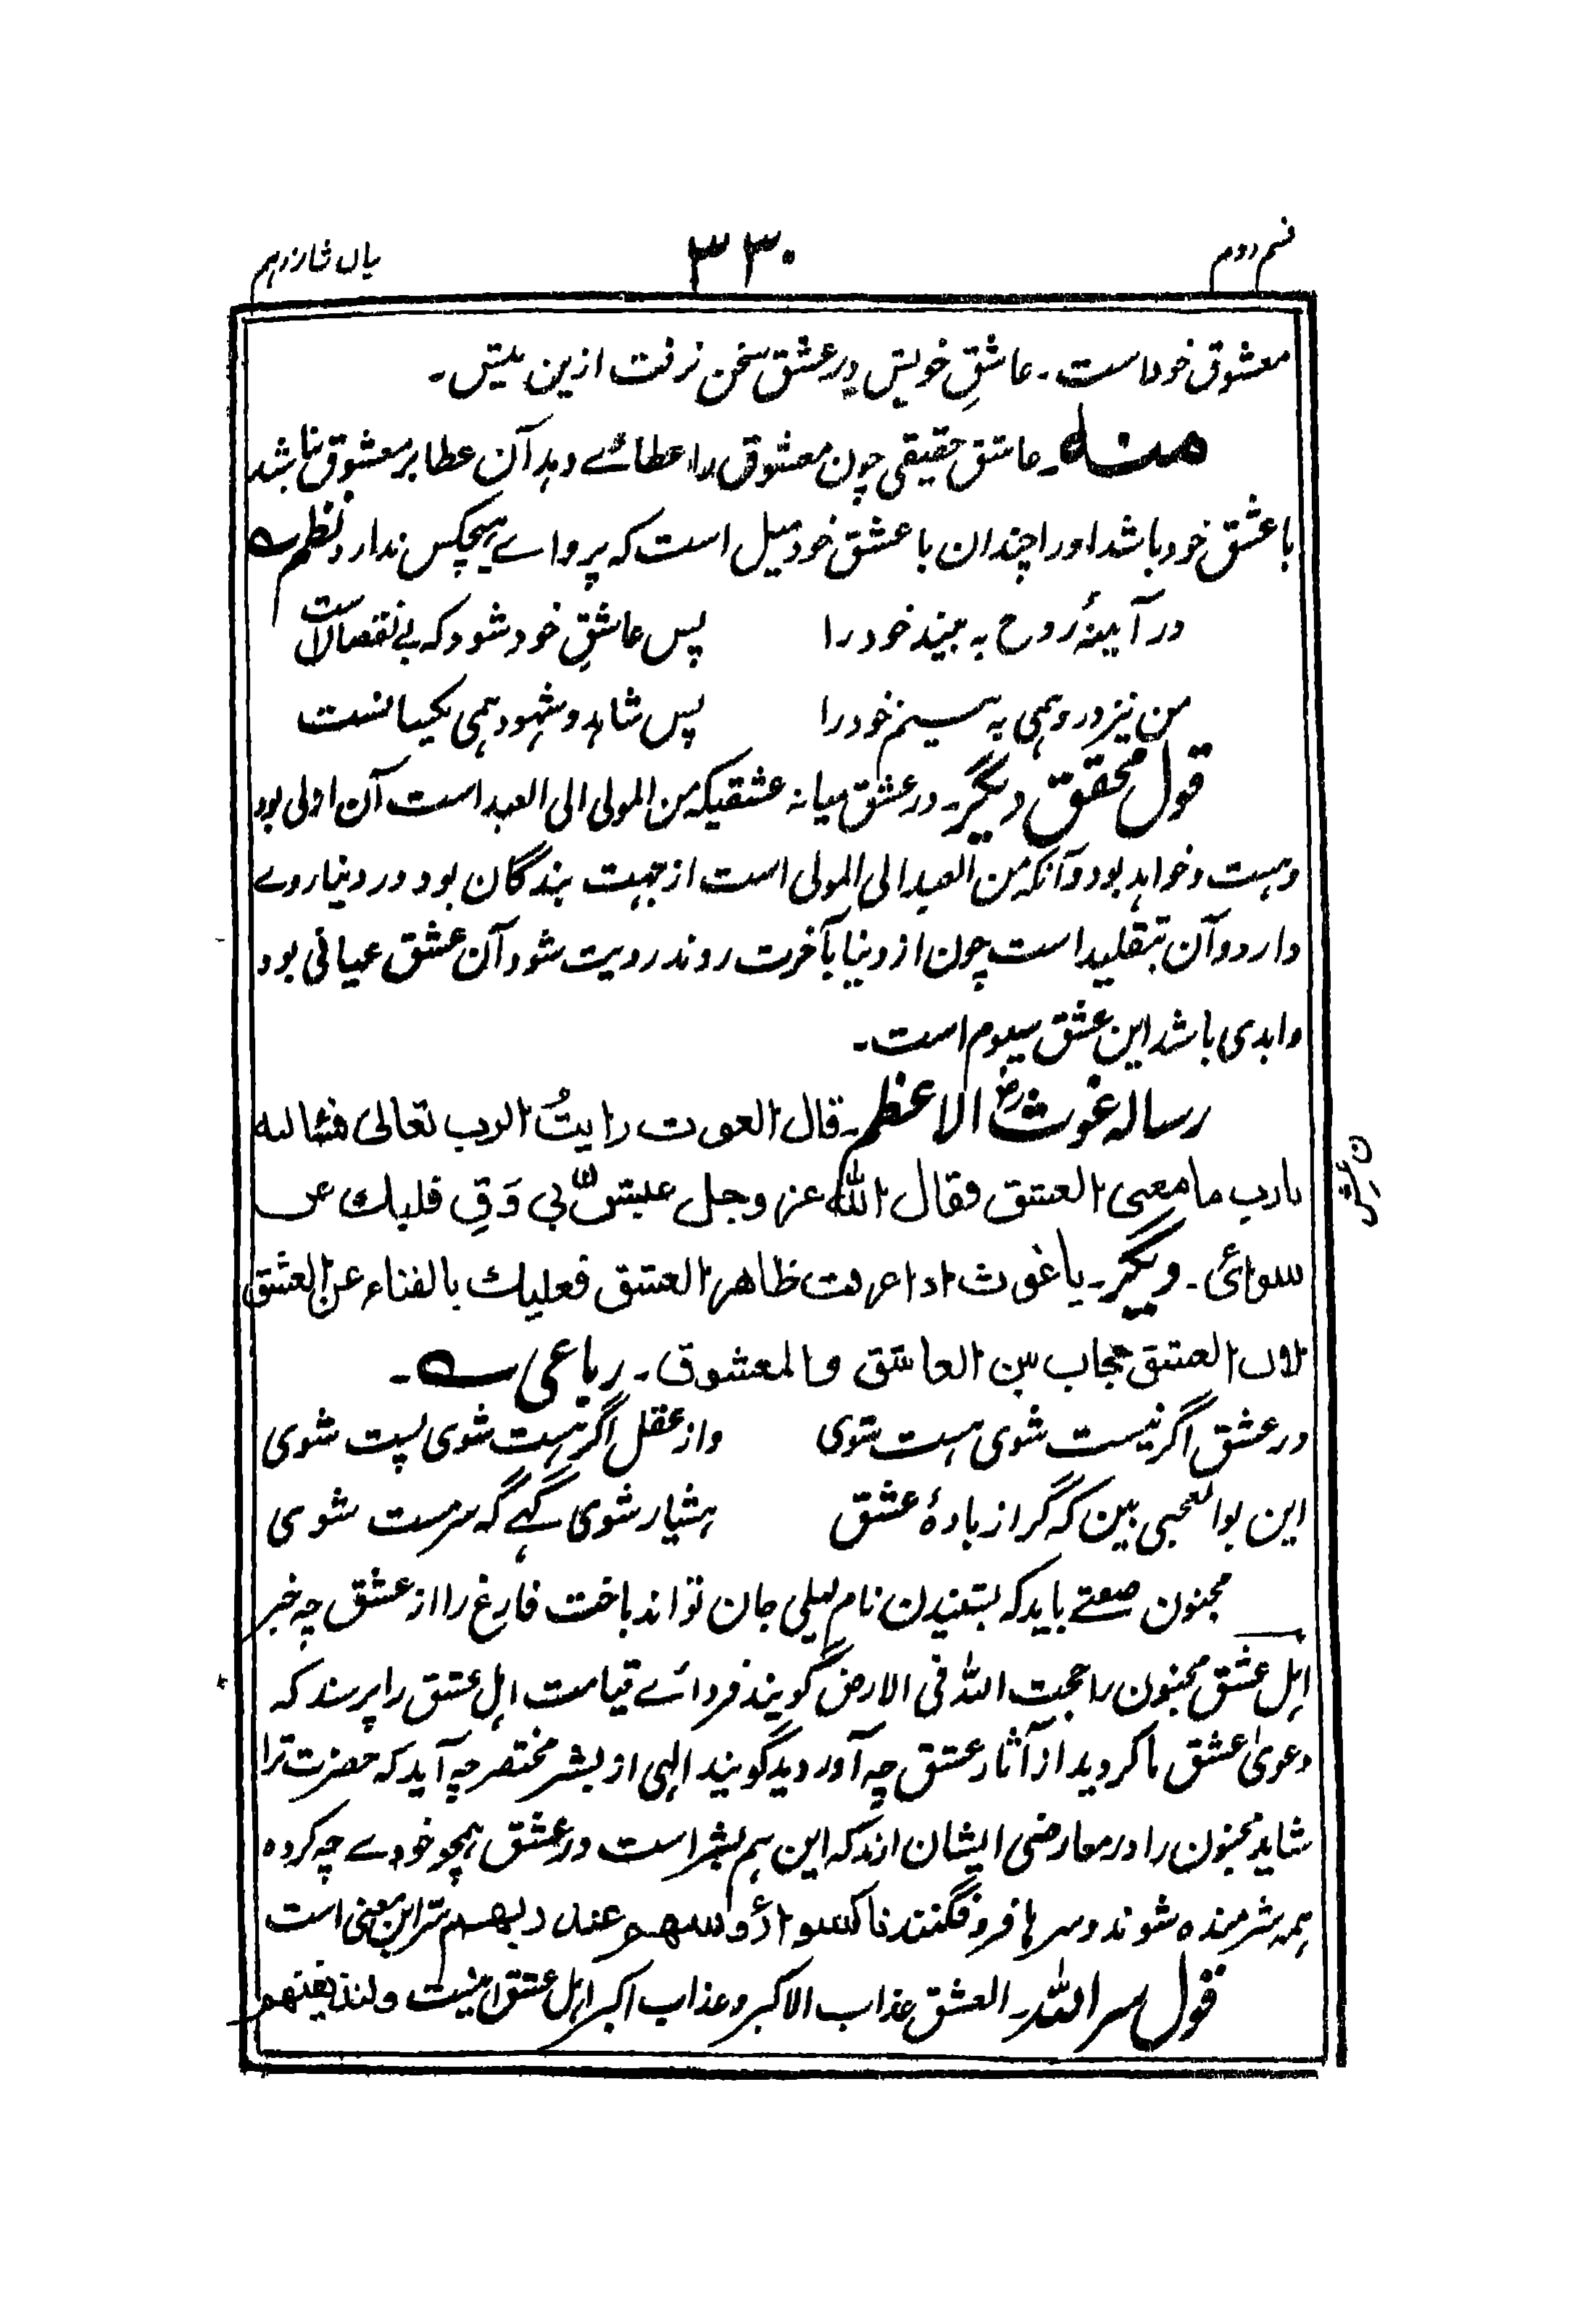 قسم دوم ۳۳۰ بیان شانزدہم
معشوق خود است۔ عاشقِ خویش در عشق سخن نرفت ازین بیش۔
منہ۔ عاشق حقیقی چون معشوق را عطائے دہد آن عطا بر معشوق نباشد
با عشق خود باشد اورا چندان با عشق خود میل است کہ پرواے ہیچکس ندارد نظم
در آیینۂ روح بہ بیند خود را پس عاشقِ خود شود کہ بے نقصان است
من نیز در و ہمی بہ بینم خود را پس شاہد و شہود ہمی یکسانست
قول محقق دیگر۔ در عشق میانہ عشقیکہ من المولی الی العبد است آن ازلی بود
وہست و خواہد بود و آنکہ من العبد الی المولی است از جہت بندگان بود در دنیا روے
دارد و آن بتقلید است چون از دنیا بآخرت روند رویت شود آن عشق عیانی بود
و ابدی باشد این عشق سیوم است۔
رسالہ غوث الاعظم رض۔ قال الغوث رایتُ الرب تعالی فسالتہ
یارب ما معنی العشق فقال اللہ عز وجل بی وَقِ قلبك عن
سوائی۔ دیگر۔ یا غوث اذا عرفت ظاهر العشق فعلیك بالفناء عن العشق
لان العشق حجاب بین العاشق والمعشوق۔ رباعی۔
در عشق اگر نیست شوی ہست شوی واز عقل اگر ہست شوی پست شوی
این بوالعجبی بین کہ گر از بادۂ عشق ہشیار شوی گہے کہ سرمست شوی
مجنون صفتے باید کہ بشنیدن نام لیلی جان تواند باخت فارغ را از عشق چہ خبر
اہل عشق مجنون را حجت اللہ فی الارض گویند فردائے قیامت اہل عشق را پرسند کہ
دعویٰ عشق ما کردید از آثار عشق چہ آوردید گویند الہی از بشر مختصر چہ آید کہ حضرت ترا
شاید مجنون را در معارضی ایشان ارند کہ این ہم بشر است در عشق ہمچو خودے چہ کردہ
ہمہ شرمندہ شوند و سر ہا فرو فگنند ناکسوا رؤسهم عند ربهم سر این معنی است
قول سر اللہ۔ العشق عذاب الاکبر و عذاب اکبر اہل عشق را نیست ولنذیقنهم